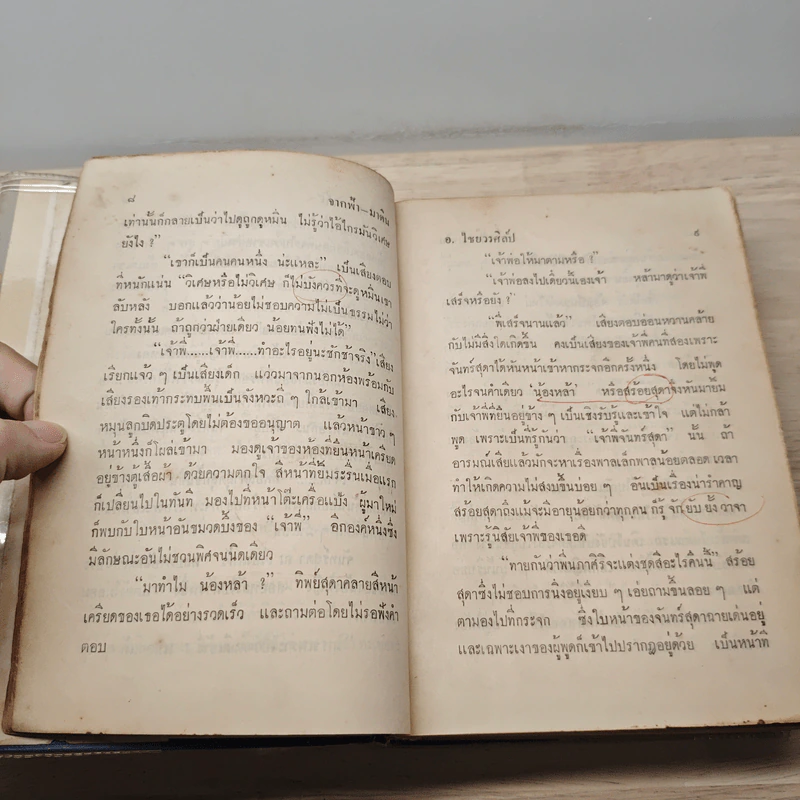 ๘
จากฟ้า—มาดิน
เท่านั้นก็กลายเป็นว่าไปดูถูกดูหมิ่น ไม่รู้ว่าไอ้ใครมันวิเศษ
ยังไง ?"
"เขาก็เป็นคนคนหนึ่ง น่ะแหละ" เป็นเสียงตอบ
ที่หนักแน่น "วิเศษหรือไม่วิเศษ ก็ไม่บังควรที่จะดูหมิ่นเขา
ลับหลัง บอกแล้วว่าน้อยไม่ชอบความไม่เป็นธรรมไม่ว่า
ใครทั้งนั้น ถ้าถูกว่าฝ่ายเดียว น้อยทนฟังไม่ได้"
"เจ้าพี่......เจ้าพี่......ทำอะไรอยู่นะชักช้าจริง" เสียง
เรียกแจ้ว ๆ เป็นเสียงเด็ก แว่วมาจากนอกห้องพร้อมกับ
เสียงรองเท้ากระทบพื้นเป็นจังหวะถี่ ๆ ใกล้เข้ามา เสียง
หมุนลูกบิดประตูโดยไม่ต้องขออนุญาต แล้วหน้าขาว ๆ
หน้าหนึ่งก็โผล่เข้ามา มองดูเจ้าของห้องที่ยืนหน้าเครียด
อยู่ข้างตู้เสื้อผ้า ด้วยความตกใจ สีหน้าที่ยิ้มระรื่นเมื่อแรก
ก็เปลี่ยนไปในทันที มองไปที่หน้าโต๊ะเครื่องแป้ง ผู้มาใหม่
ก็พบกับใบหน้าอันขมวดบึ้งของ "เจ้าพี่" อีกองค์หนึ่งซึ่ง
มีลักษณะอันไม่ชวนพิศจนนิดเดียว
"มาทำไม น้องหล้า ?" ทิพย์สุดาคลายสีหน้า
เครียดของเธอได้อย่างรวดเร็ว และถามต่อโดยไม่รอฟังคำ
ตอบ
อ. ไชยวรศิลป์
๙
"เจ้าพ่อให้มาตามหรือ ?"
"เจ้าพ่อลงไปเดี๋ยวนี้เองเจ้า หล้ามาดูว่าเจ้าพี่
เสร็จหรือยัง ?"
"พี่เสร็จนานแล้ว" เสียงตอบอ่อนหวานคล้าย
กับไม่มีสิ่งใดเกิดขึ้น คงเป็นเสียงของเจ้าพี่คนที่สองเพราะ
จันทร์สุดาได้หันหน้าเข้าหากระจกอีกครั้งหนึ่ง โดยไม่พูด
อะไรจนคำเดียว 'น้องหล้า' หรือสร้อยสุดาจึงหันมายิ้ม
กับเจ้าพี่ที่ยืนอยู่ข้าง ๆ เป็นเชิงรับรู้และเข้าใจ แต่ไม่กล้า
พูด เพราะเป็นที่รู้กันว่า "เจ้าพี่จันทร์สุดา" นั้น ถ้า
อารมณ์เสียแล้วมักจะหาเรื่องพาลเล็กพาลน้อยตลอด เวลา
ทำให้เกิดความไม่สงบขึ้นบ่อย ๆ อันเป็นเรื่องน่ารำคาญ
สร้อยสุดาถึงแม้จะมีอายุน้อยกว่าทุกคน ก็รู้ จักยับ ยั้ง วาจา
เพราะรู้นิสัยเจ้าพี่ของเธอดี
"ทายกันว่าพี่นภาศิริจะแต่งชุดสีอะไรคืนนี้" สร้อย
สุดาซึ่งไม่ชอบการนิ่งอยู่เงียบ ๆ เอ่ยถามขึ้นลอย ๆ แต่
ตามองไปที่กระจก ซึ่งใบหน้าของจันทร์สุดาฉายเด่นอยู่
และเฉพาะเงาของผู้พูดก็เข้าไปปรากฏอยู่ด้วย เป็นหน้าที่